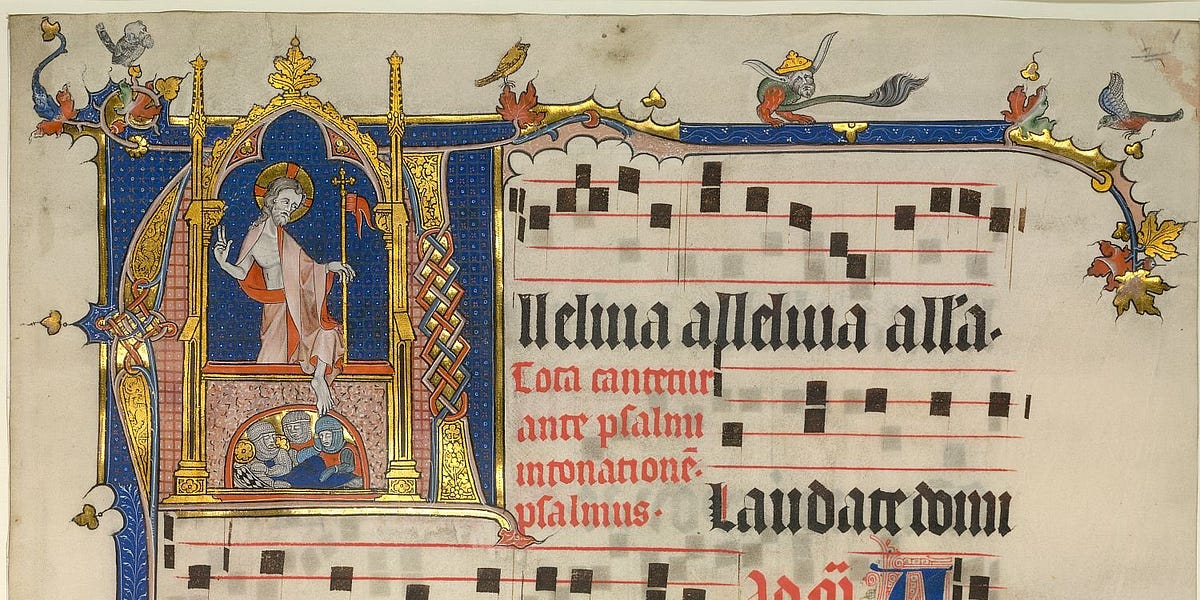 Alleluia alleluia all'a.
Tota cantetur
ante psalmi
intonationē.
psalmus.
Laudate domi